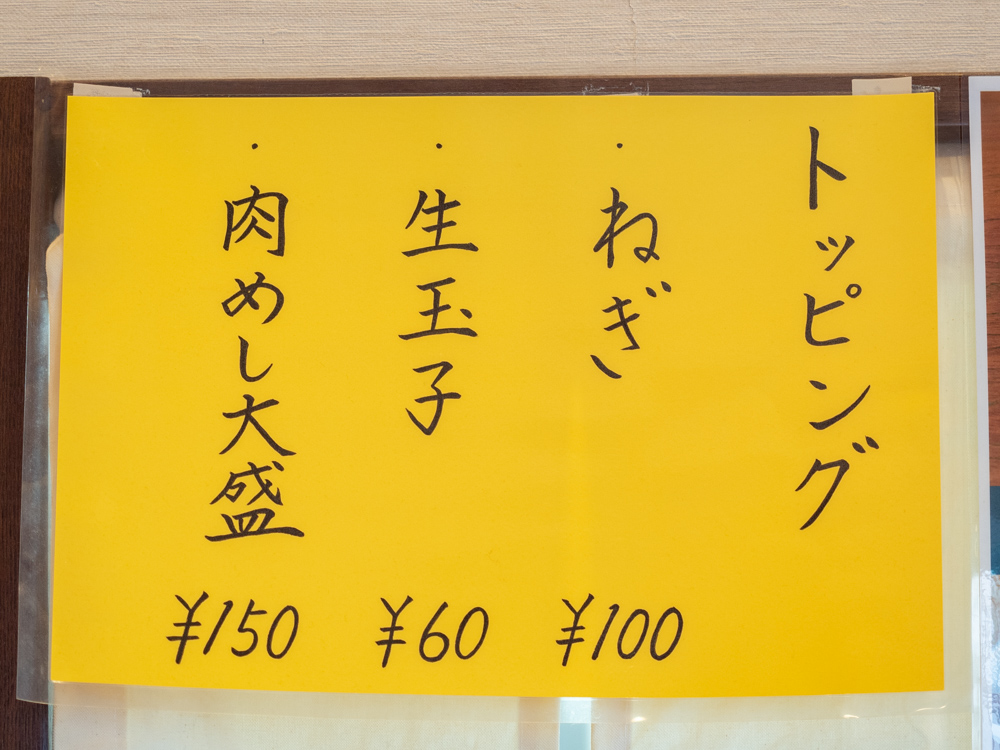 トッピング
・ねぎ ¥100
・生玉子 ¥60
・肉めし大盛 ¥150